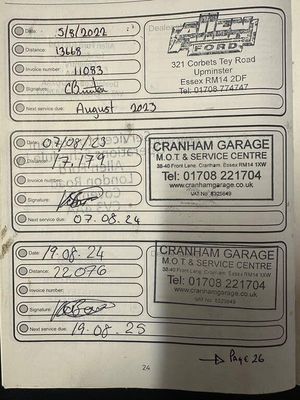 Date: 5/8/2022
Distance: 13668
Invoice number: 11083
Signature:
Next service due: August 2023
FORD
321 Corbets Tey Road
Upminster
Essex RM14 2DF
Tel: 01708 774747
Date: 07/08/23
Distance: 17,179
Invoice number:
Signature:
Next service due: 07.08.24
CRANHAM GARAGE
M.O.T & SERVICE CENTRE
38-40 Front Lane, Cranham, Essex RM14 1XW
Tel: 01708 221704
www.cranhamgarage.co.uk
Date: 19.08.24
Distance: 22,076
Invoice number:
Signature:
Next service due: 19.08.25
CRANHAM GARAGE
M.O.T & SERVICE CENTRE
38-40 Front Lane, Cranham, Essex RM14 1XW
Tel: 01708 221704
www.cranhamgarage.co.uk
24
Page 26